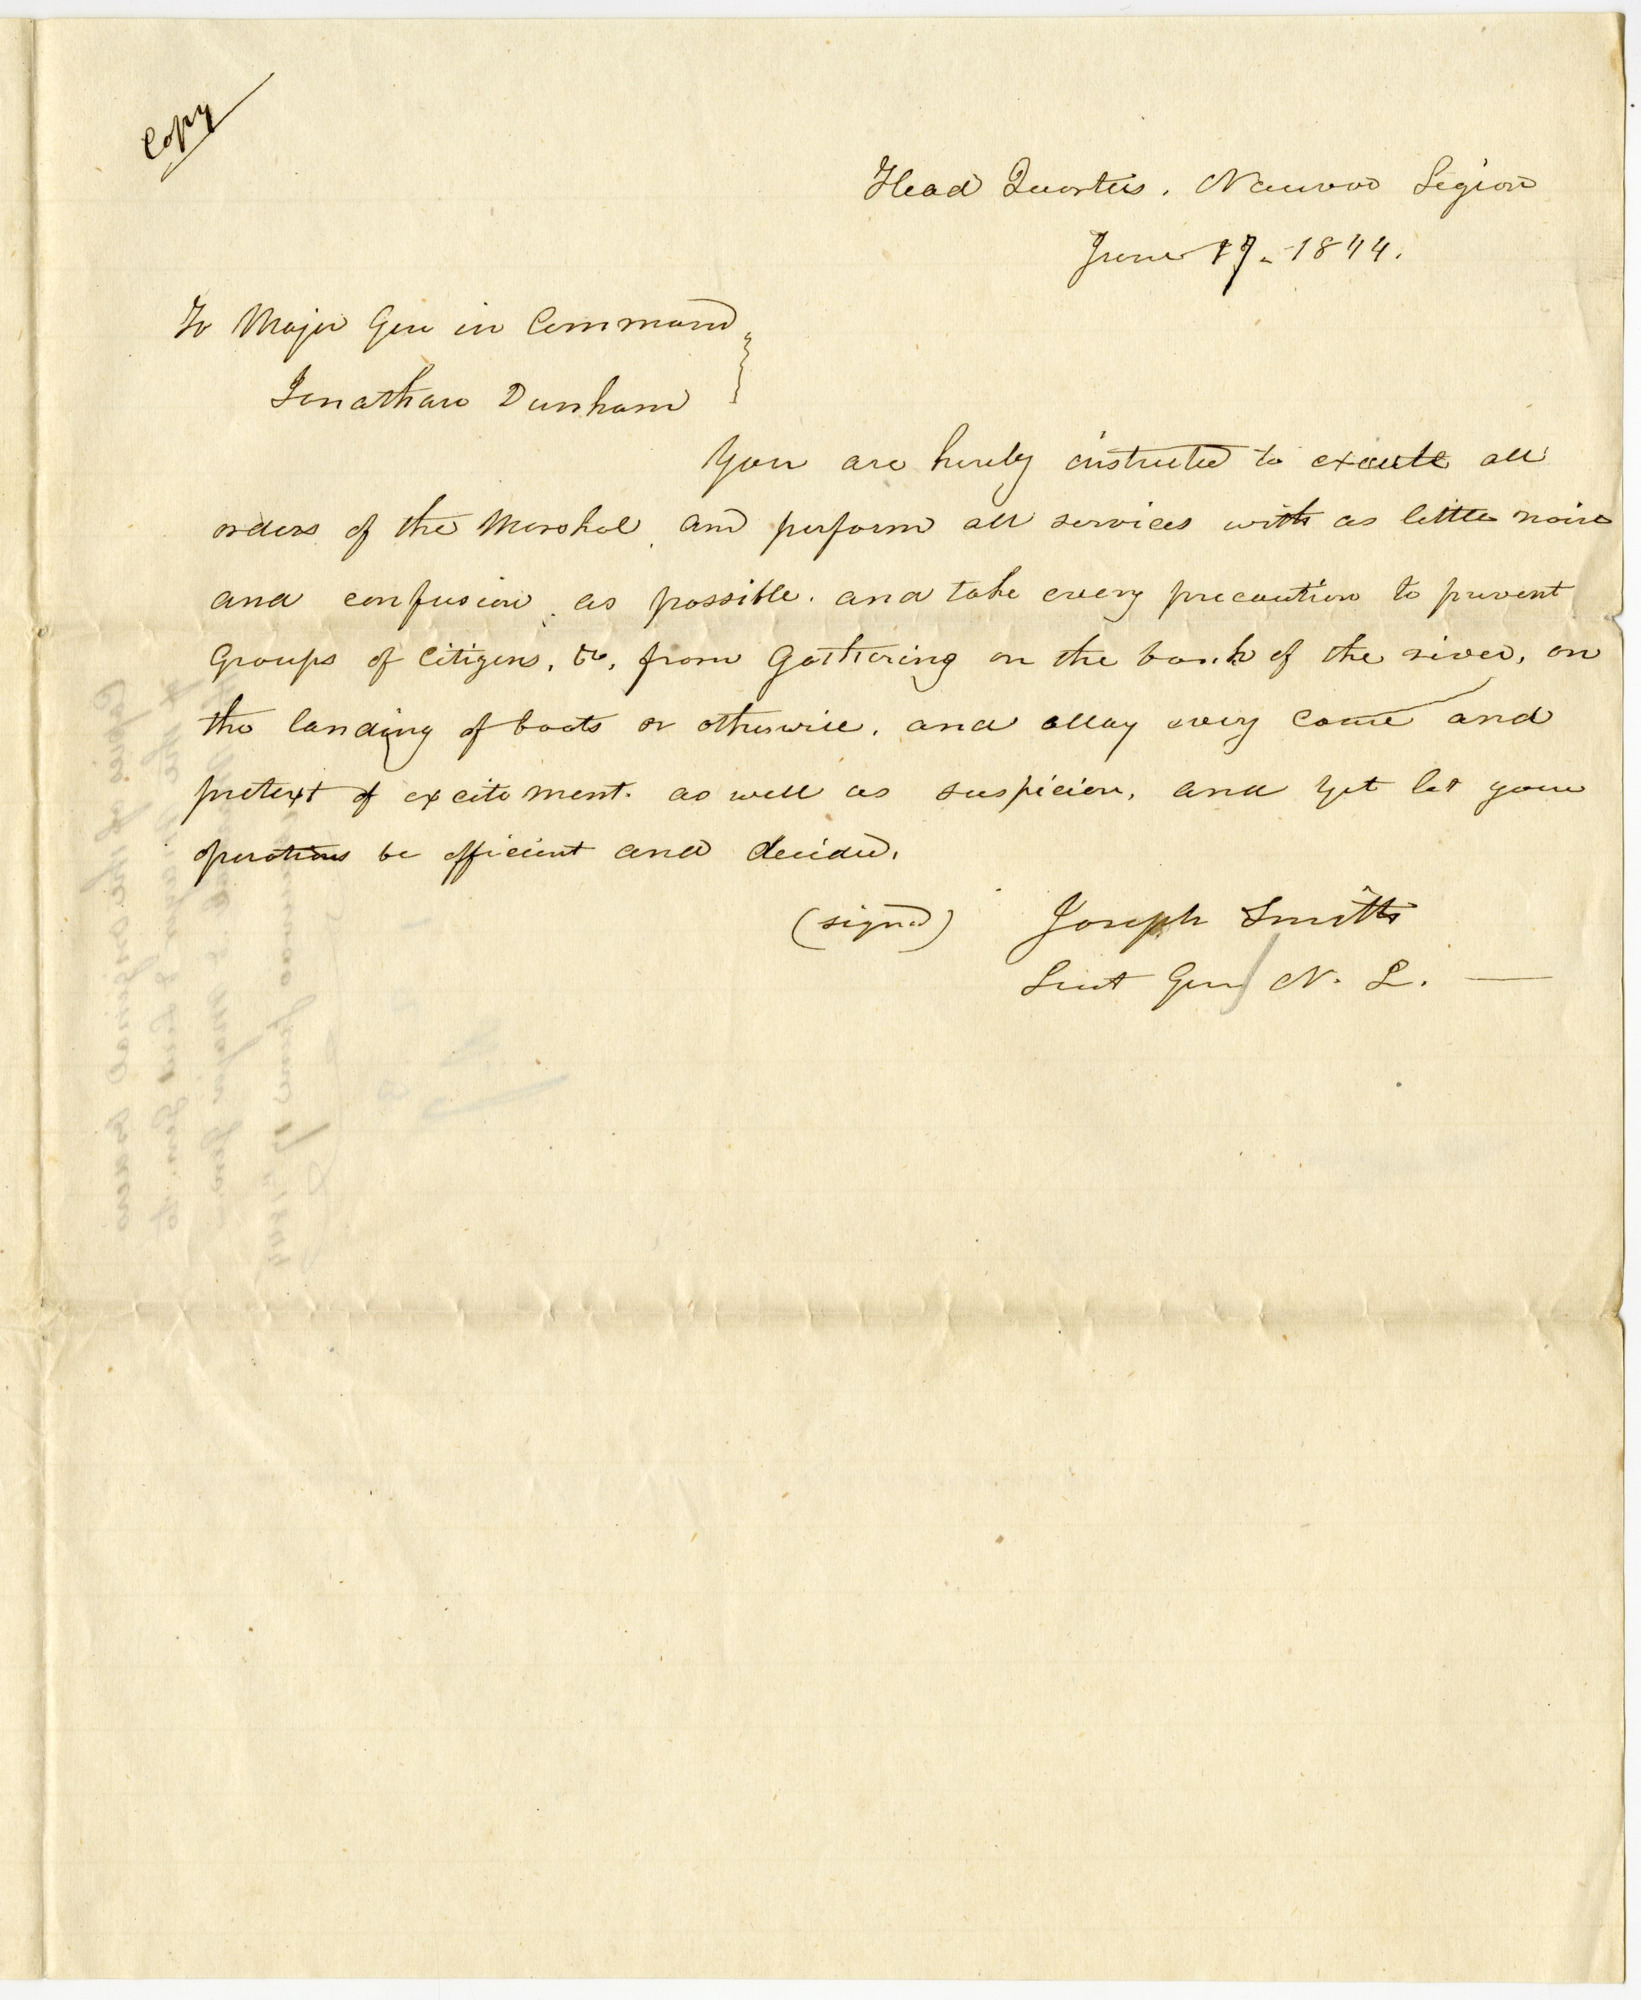 Copy
Head Quarters. Nauvoo Legion
June 17. 1844.
To Major Gen in Command
Jonathan Dunham
You are hereby instructed to execute all
orders of the Marshal, and perform all services with as little noise
and confusion, as possible. and take every precaution to prevent
Groups of Citizens, &c, from Gathering on the bank of the river, on
the landing of boats or otherwise. and allay every cause and
pretext of excitement. as well as suspicion, and yet let your
operations be efficient and decided.
(signed) Joseph Smith
Lieut Gen N. L.